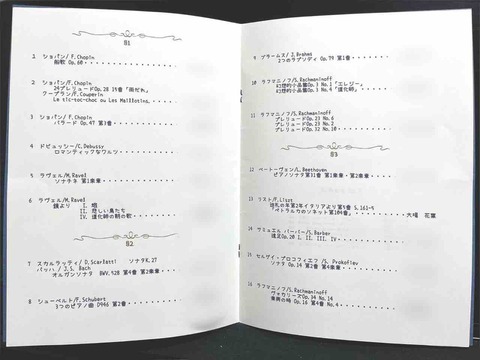 B1
1 ショパン/ F.Chopin
船歌 Op.60・・・・・・・・・・・
2 ショパン/F.Chopin
24プレリュードOp.28 15番「雨だれ」
クープラン/F.Couperin
Le tic-toc-choc ou Les Maillotins.
3 ショパン/ F.Chopin
バラード Op.47 第3番・・・・・・・・
4 ドビュッシー/C.Debussy
ロマンティックなワルツ・・・・・・・
5 ラヴェル/M.Ravel
ソナチネ 第1楽章・・・・・・・・・
6 ラヴェル/M.Ravel
鏡より I. 蛾
II. 悲しい鳥たち
IV. 道化師の朝の歌・・・・・
B2
7 スカルラッティ/ D.Scarlatti ソナタK.27
バッハ / J.S. Bach
オルガンソナタ BWV.528 第4番 第2楽章・・・
8 シューベルト/F.Schubert
3つのピアノ曲 D946 第2番・・・・・・
9 ブラームス/ J.Brahms
2つのラプソディ Op.79 第1番・・・・・
10 ラフマニノフ/S.Rachmaninoff
幻想的小品集Op.3 No.1「エレジー」
幻想的小品集Op.3 No.4「道化師」・・・・・
11 ラフマニノフ/S.Rachmaninoff
プレリュードOp.23 No.6
プレリュードOp.23 No.2
プレリュードOp.32 No.10・・・・・・・・
B3
12 ベートーヴェン/L.Beethoven
ピアノソナタ 第31番 第1楽章・・・・・
13 リスト/F.Liszt
巡礼の年第2年イタリアより第5番 S.161-5
「ペトラルカのソネット第104番」・・・・ 大場 花葉
14 サミュエル バーバー/S.Barber
遠足Op.20 I. II. III. IV・・・・・・・
15 セルゲイ・プロコフィエフ /S. Prokofiev
ソナタ Op.14 第2番・・・・・・・・・
16 ラフマニノフ/S.Rachmaninoff
ヴォカリーズOp.34 No.14
楽興の時 Op.16 第4番 No.4・・・・・・